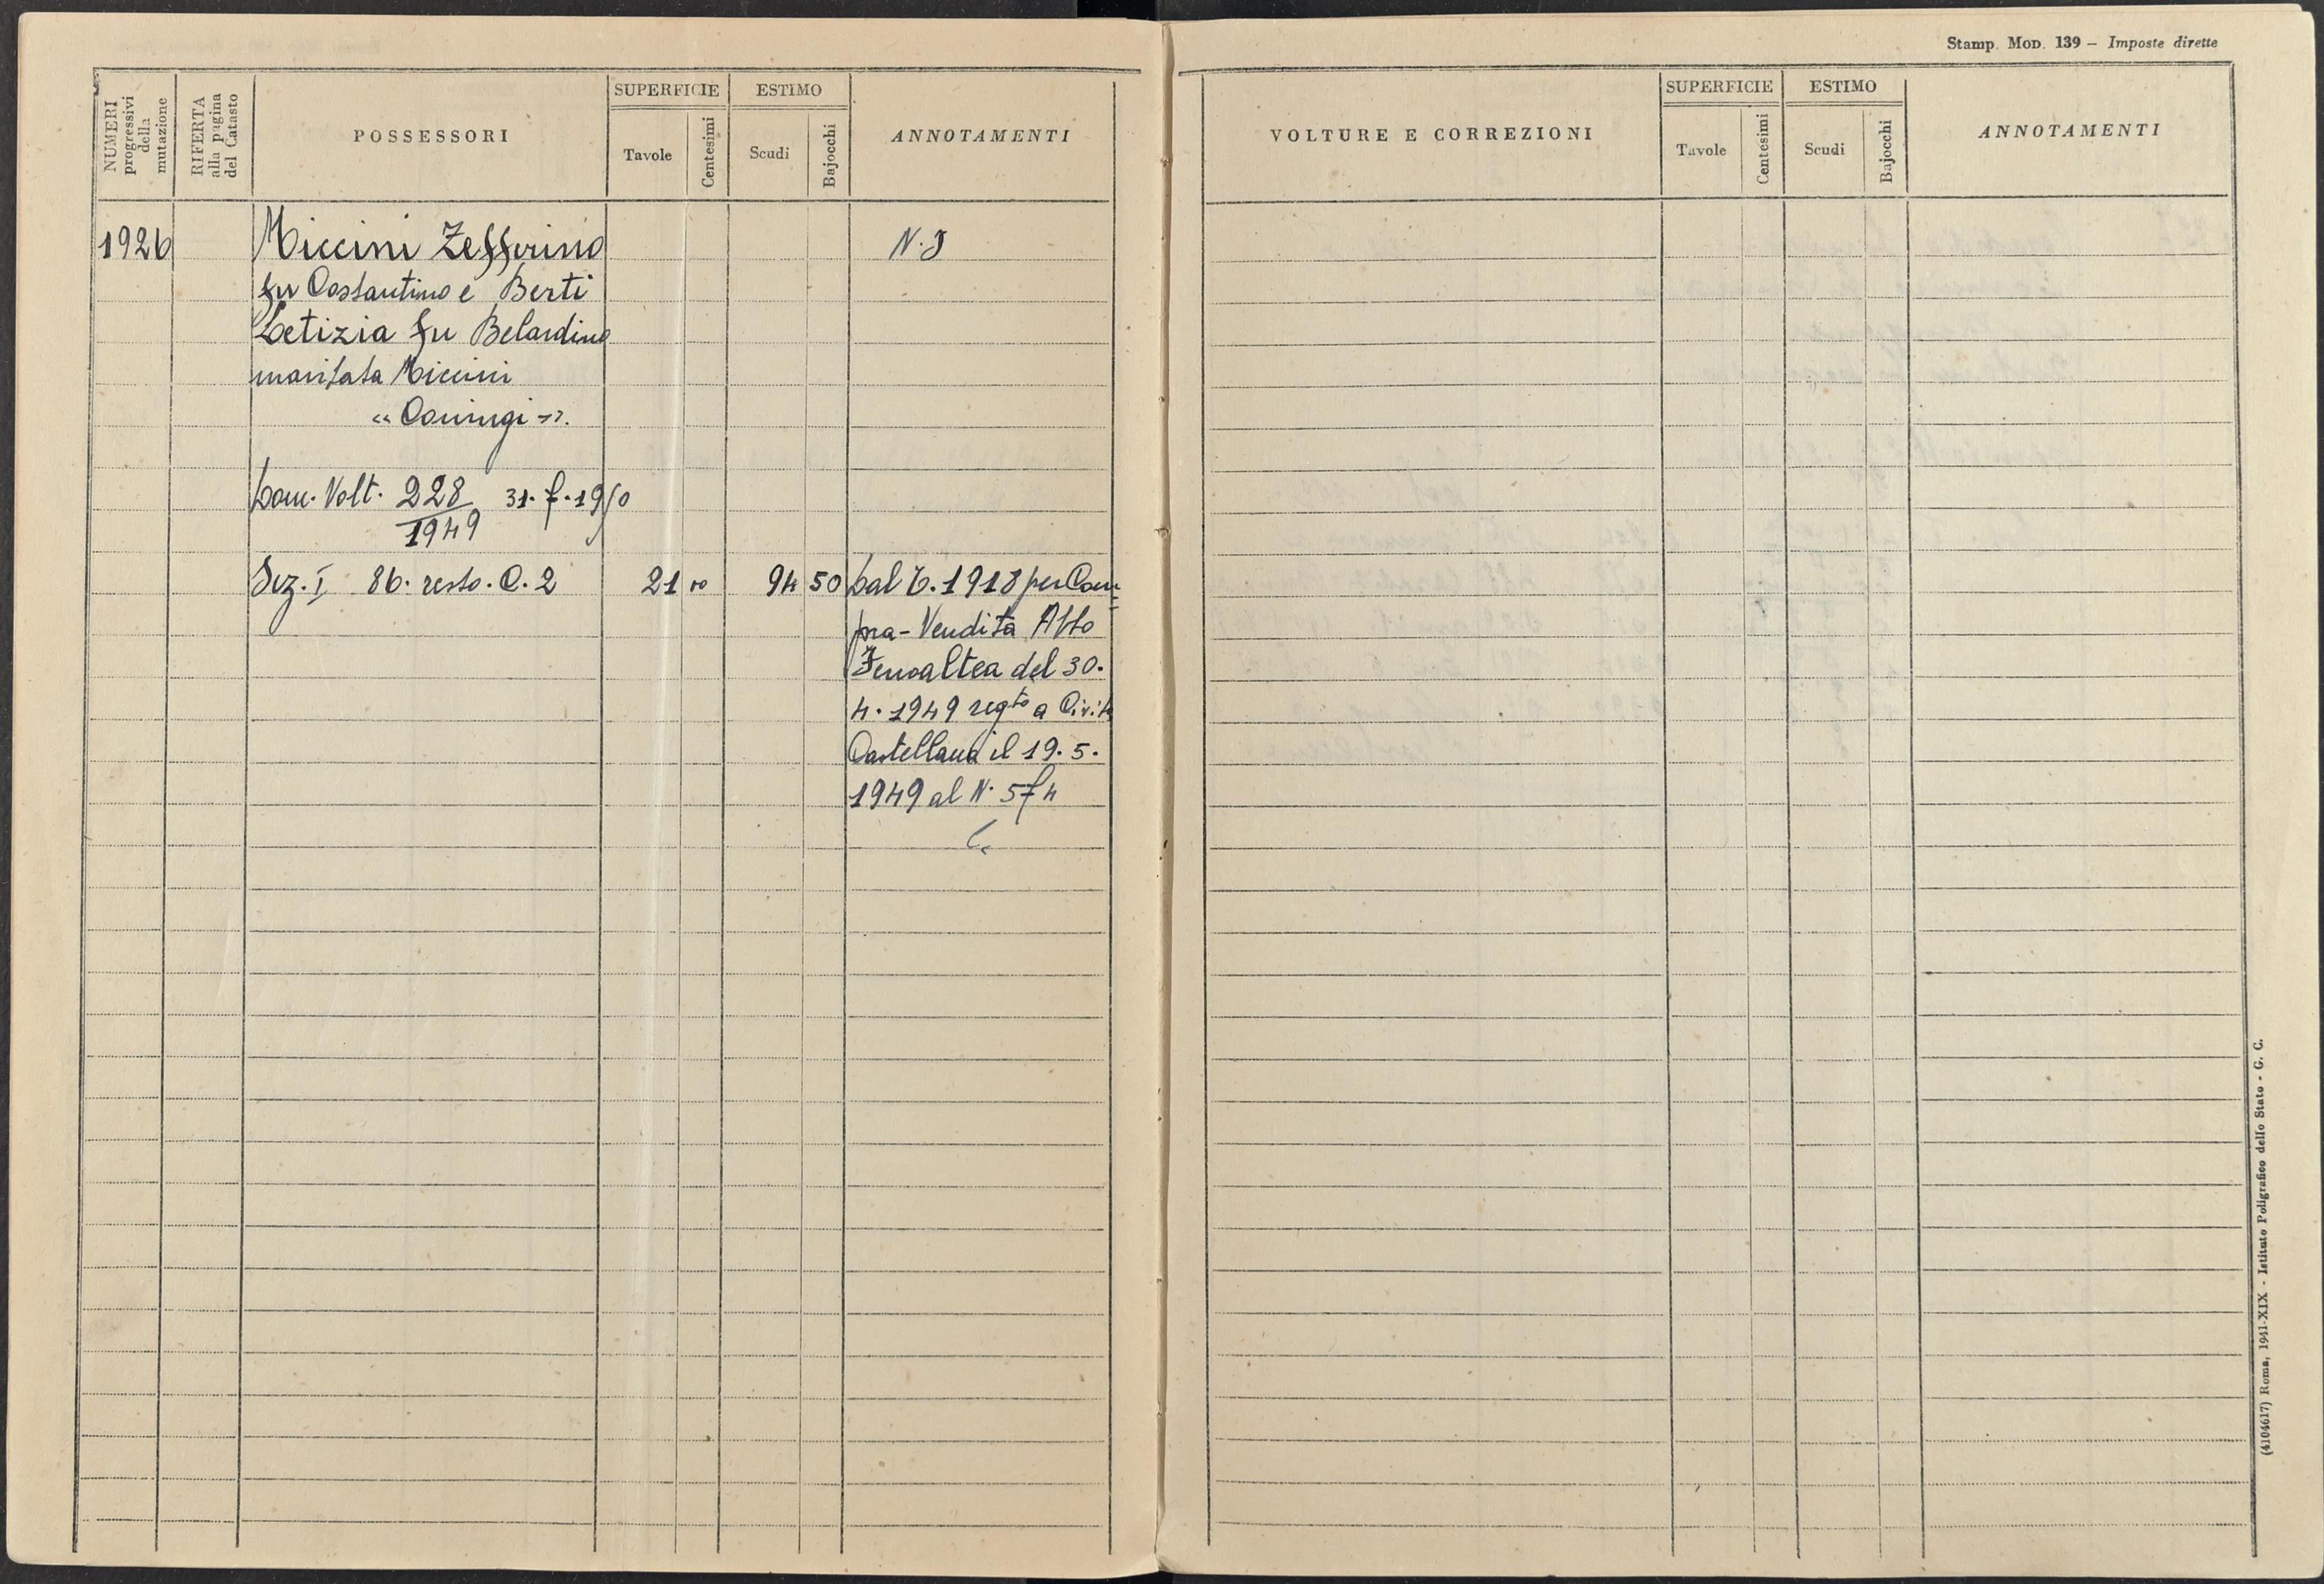 NUMERI progressivi della mutazione
RIFERTA alla pagina del Catasto
POSSESSORI
SUPERFICIE
Tavole
Centesimi
ESTIMO
Scudi
Bajocchi
ANNOTAMENTI
1926
Miccini Zefferino
N. I
fu Costantino e Berti
Letizia fu Belardino
maritata Miccini
« Coniugi ».
Dom. Volt. 228/1949 31.7.1950
Sez. I 86. resto. C. 2 21 00 94 50 Dal C. 1918 per Com=
pra-Vendita Atto
Fenoaltea del 30.
4. 1949 regto a Civita
Castellana il 19. 5.
1949 al N. 574
Stamp. Mod. 139 – Imposte dirette
VOLTURE E CORREZIONI
SUPERFICIE
Tavole
Centesimi
ESTIMO
Scudi
Bajocchi
ANNOTAMENTI
(4104617) Roma, 1941-XIX - Istituto Poligrafico dello Stato - G. C.